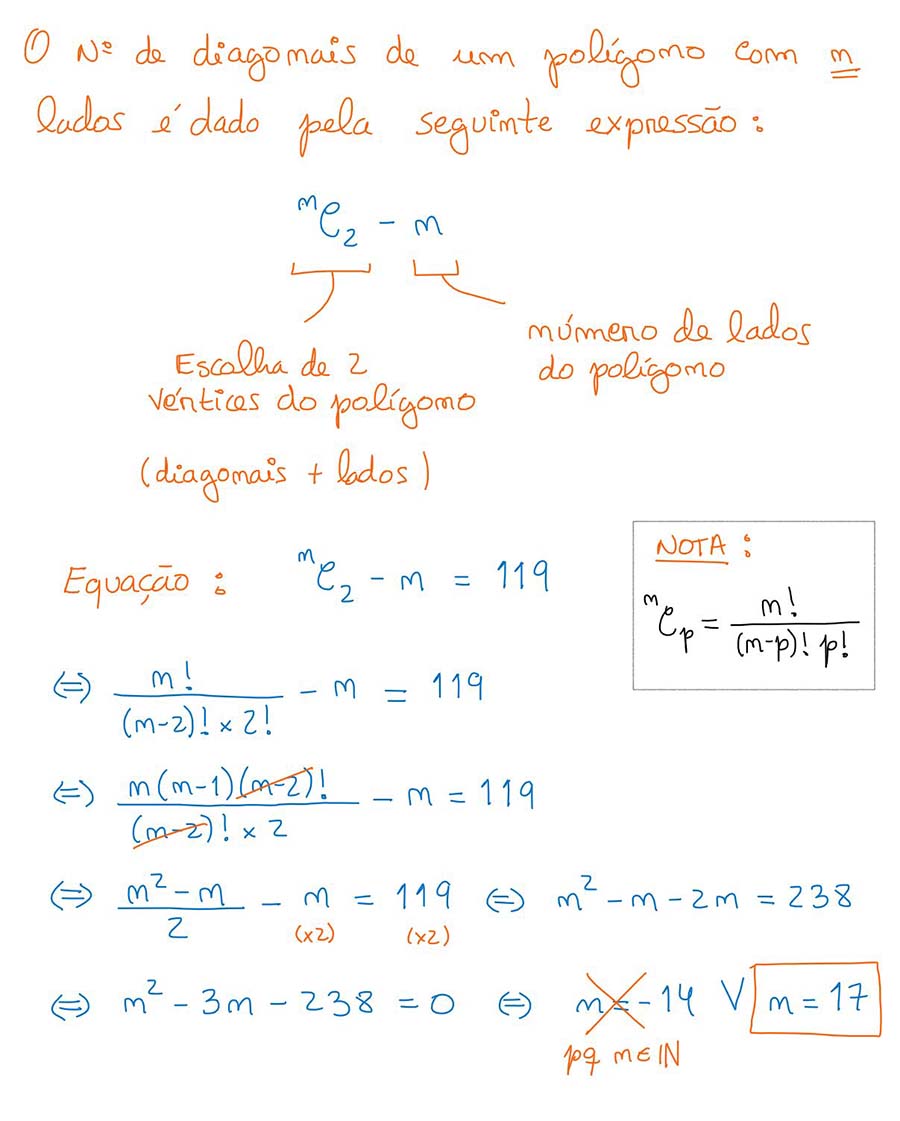 O Nº de diagonais de um polígono com n
lados é dado pela seguinte expressão:
ⁿC₂ - n
Escolha de 2
vértices do polígono
(diagonais + lados)
número de lados
do polígono
Equação: ⁿC₂ - n = 119
NOTA:
ⁿCₚ = n! / (n-p)! p!
⇔ n! / (n-2)! × 2! - n = 119
⇔ n(n-1)(n-2)! / (n-2)! × 2 - n = 119
⇔ n² - n / 2 - n = 119 ⇔ n² - n - 2n = 238
(×2) (×2)
⇔ n² - 3n - 238 = 0 ⇔ n = -14 ∨ n = 17
pq n ∈ ℕ